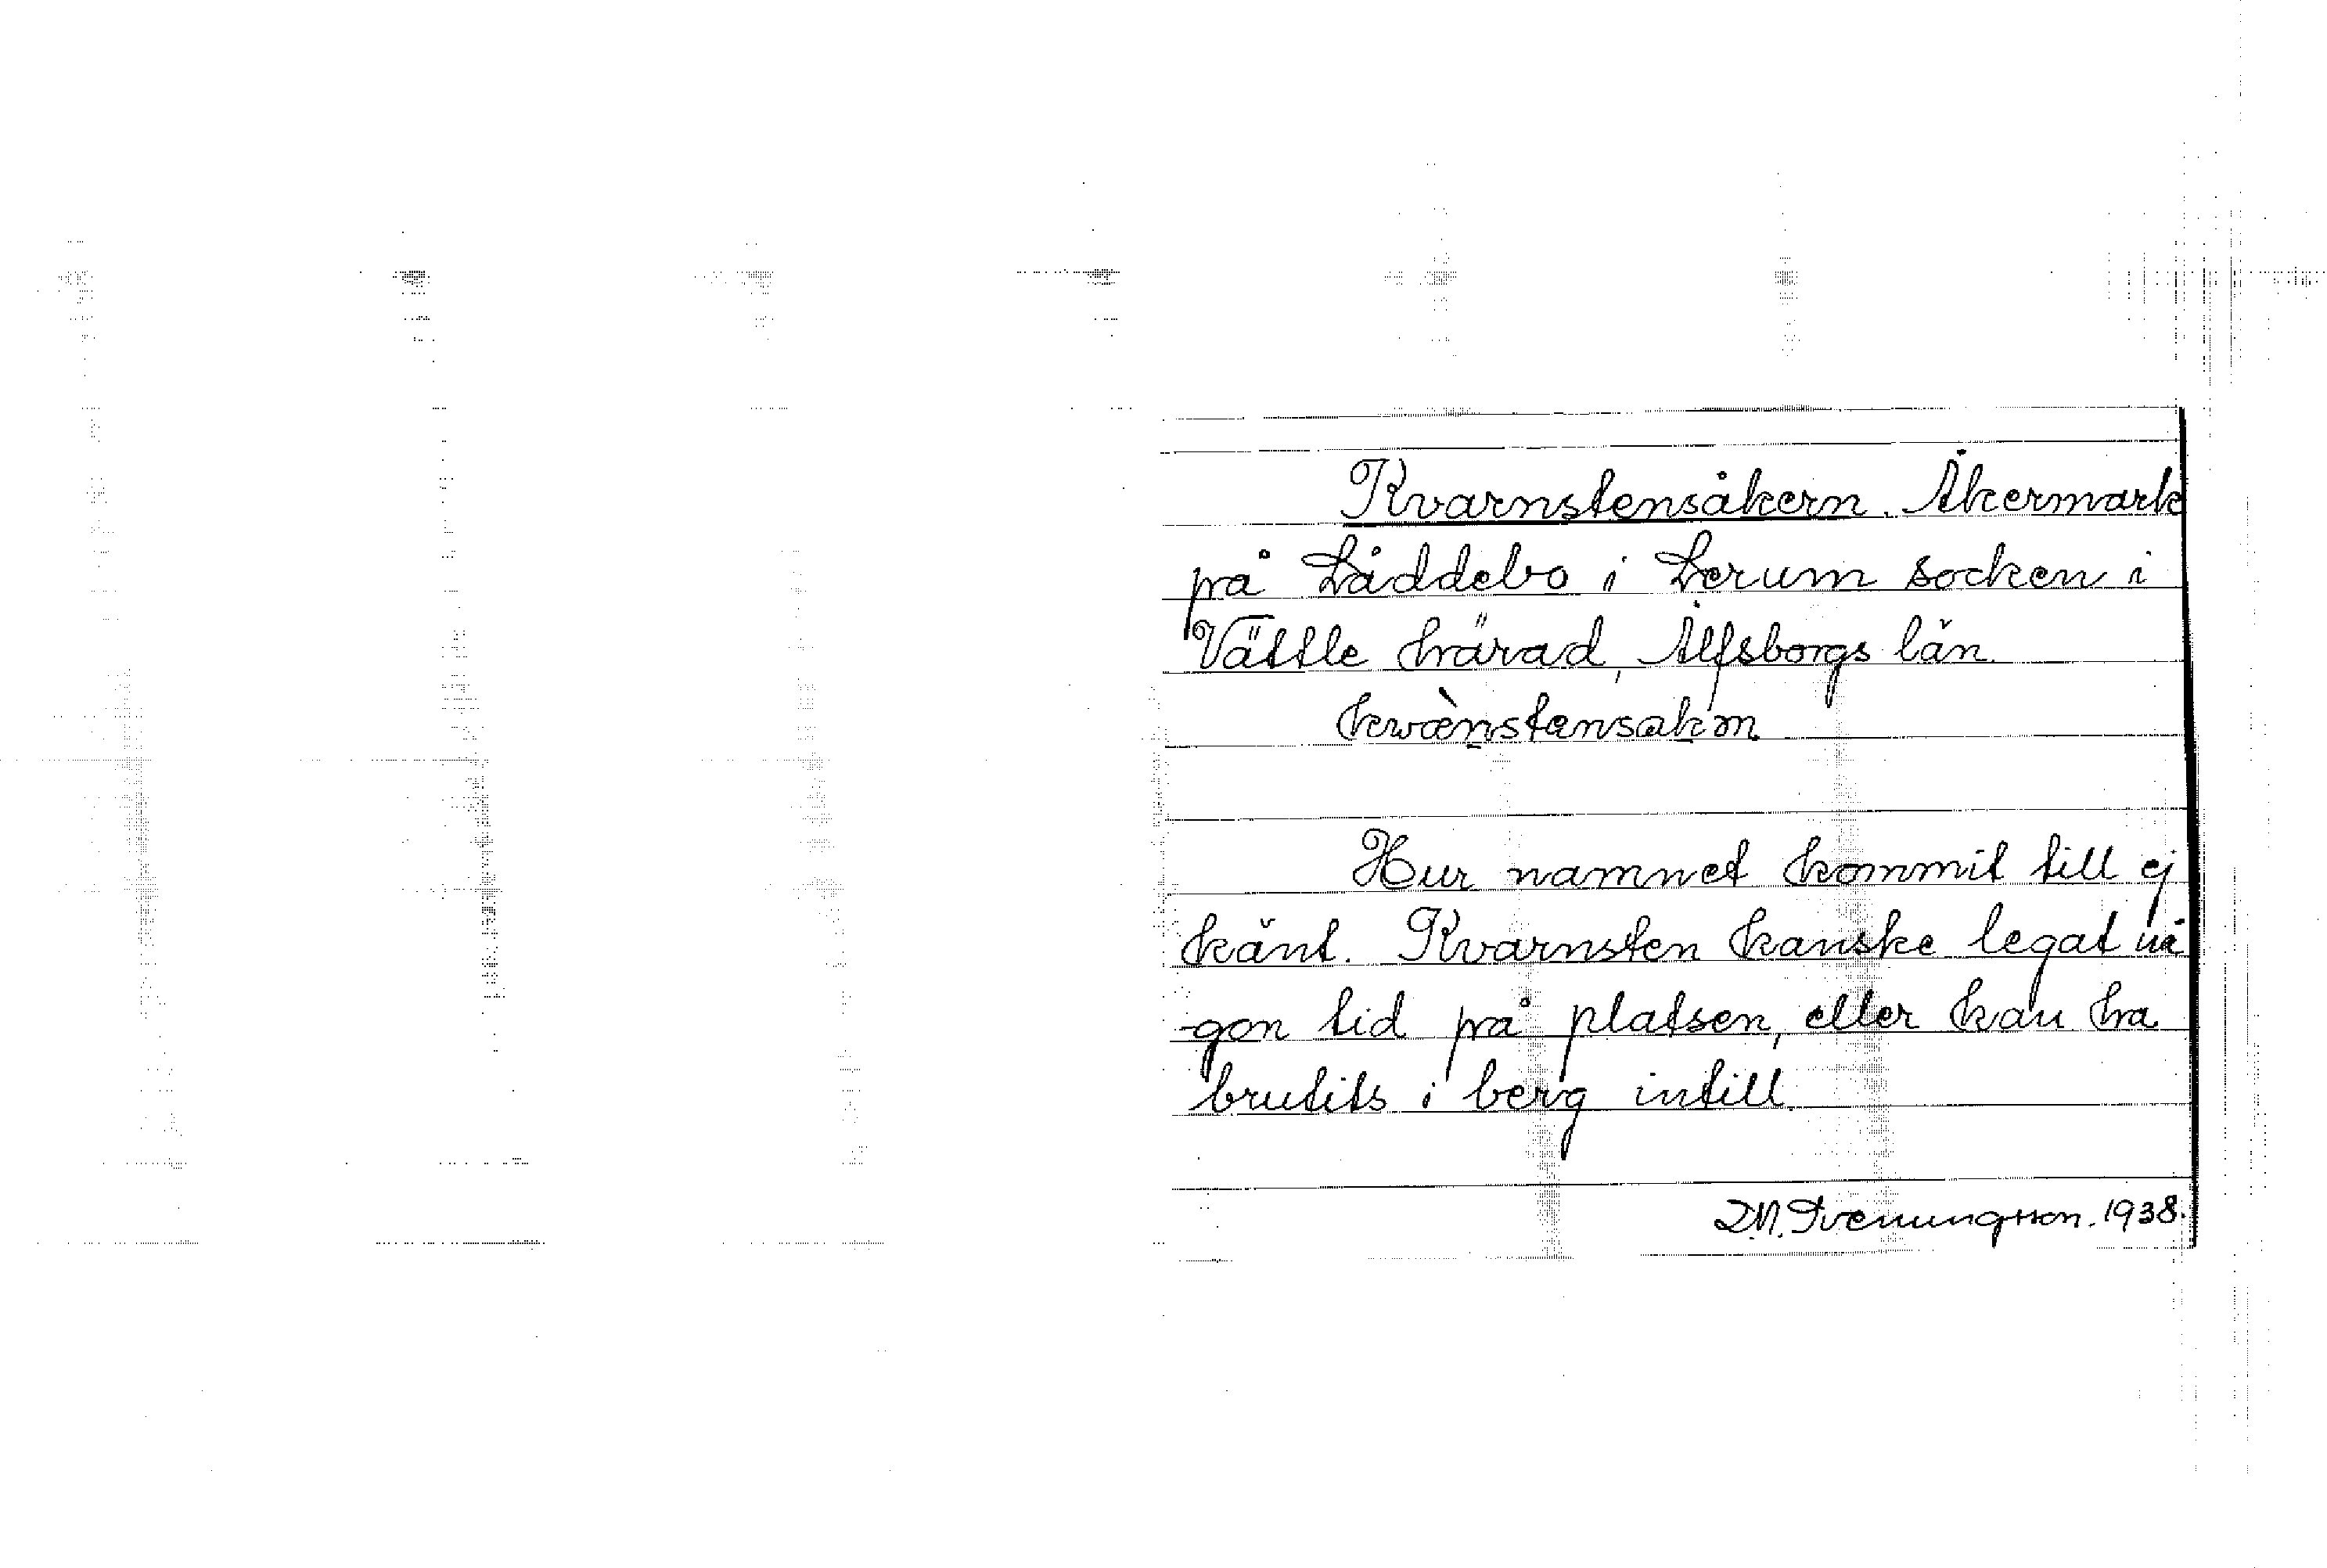 Kvarnstensåkern. Åkermark
på Låddebo i Lerum socken i
Vättle härad, Älfsborgs län.
kwæ̀nstensakən
Hur namnet kommit till ej
känt. Kvarnsten kanske legat nå
-gon tid på platsen, eller kan ha
brutits i berg intill.
D.N. Svenungsson. 1938.